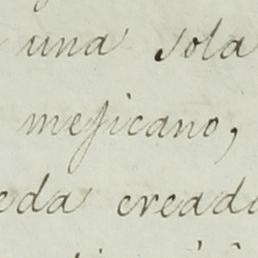 una sola
mejicano,
eda creada